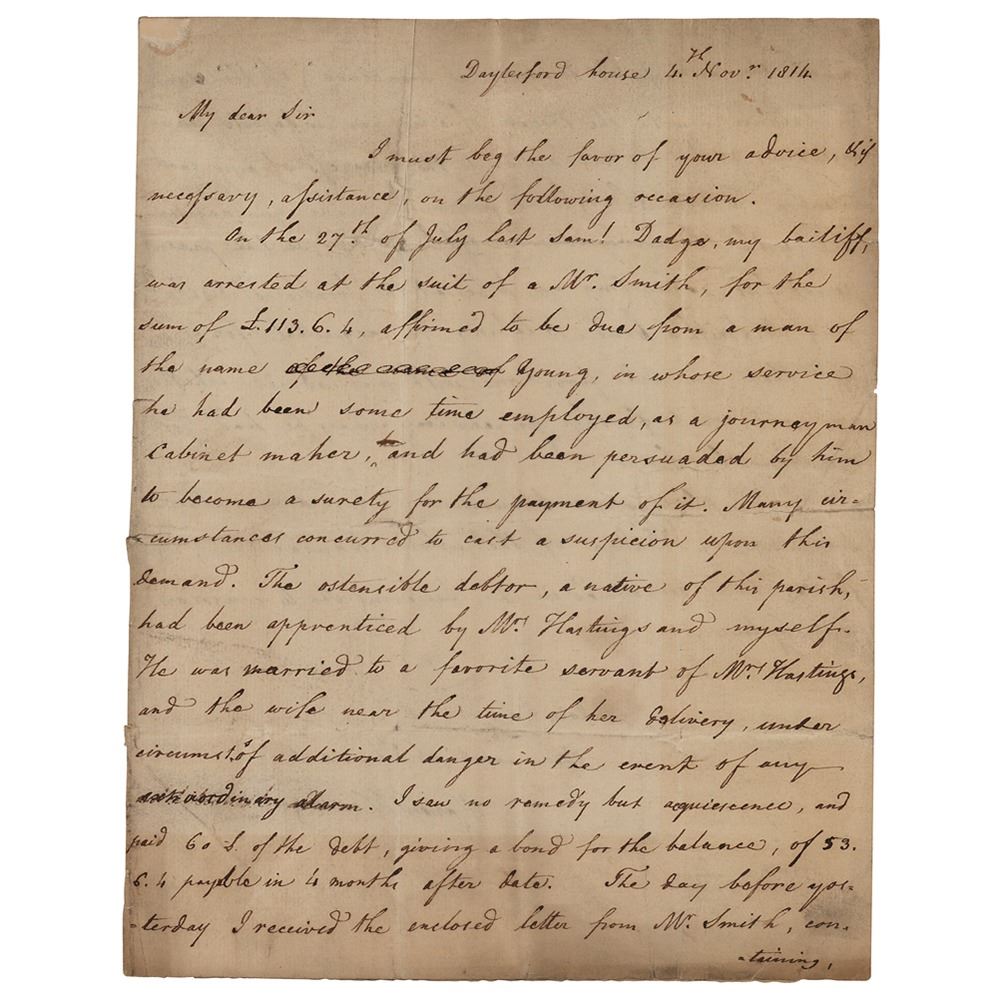 Daylesford house 4.th Novr. 1814.
My dear Sir
I must beg the favor of your advice, & if
necessary, assistance, on the following occasion.
On the 27th. of July last Saml. Dadge, my bailiff,
was arrested at the suit of a Mr. Smith, for the
sum of £.113.6.4, affirmed to be due from a man of
the name Young, in whose service
he had been some time employed, as a journeyman
Cabinet maker, and had been persuaded by him
to become a surety for the payment of it. Many cir=
=cumstances concurred to cast a suspicion upon this
demand. The ostensible debtor, a native of this parish,
had been apprenticed by Mrs. Hastings and myself.
He was married to a favorite servant of Mrs. Hastings,
and the wife near the time of her delivery, under
circumsts. of additional danger in the event of any
extraordinary alarm. I saw no remedy but aquiescence, and
paid 60 £. of the debt, giving a bond for the balance, of 53.
6.4 payable in 4 months after date. The day before yes=
=terday I received the enclosed letter from Mr. Smith, con=
=taining,